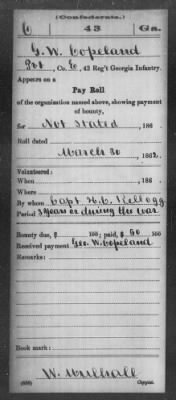 (Confederate.)
C 43 Ga.
G. W. Copeland
Pvt, Co. C, 43 Reg't Georgia Infantry.
Appears on a
Pay Roll
of the organization named above, showing payment
of bounty,
for Not Stated, 186
Roll dated
March 20, 1862.
Volunteered:
When , 186 .
Where
By whom Capt H. C. Kellogg
Period 3 years or during the war
Bounty due, $ 100; paid, $ 50 100
Received payment Geo. W. Copeland
Remarks:
Book mark:
W. Mulhall
Copyist.